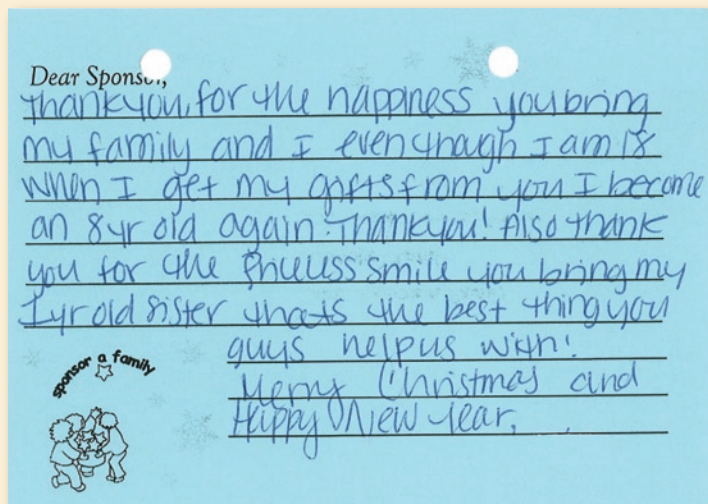 Dear Sponsor,
Thankyou, for the happiness you bring
my family and I even though I am 18
when I get my gifts from you I become
an 8yr old again. Thankyou! Also thank
you for the priceless smile you bring my
1yr old sister thats the best thing you
guys help us with!
Merry Christmas and
Happy New Year.
sponsor a family